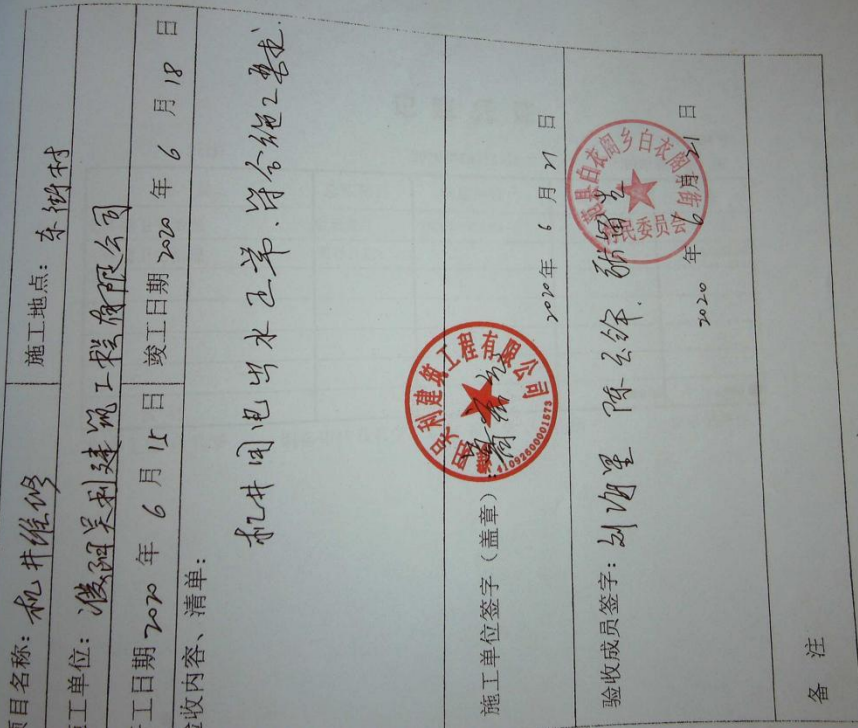 项目名称：机井维修 施工地点：东街村
施工单位：濮阳昊利建筑工程有限公司
开工日期 2020 年 6 月 15 日 竣工日期 2020 年 6 月 18 日
验收内容、清单：
机井用电出水正常、符合施工要求.
施工单位签字（盖章）：
濮阳昊利建筑工程有限公司
4109260001573
2020年 6 月 21 日
验收成员签字：刘
陈
张
范县白衣阁乡白衣阁
街
村民委员会
2020 年 6 月 21 日
备 注